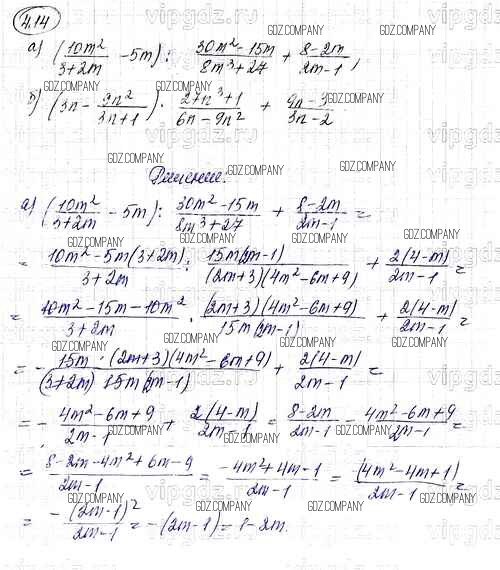 4.14
а) (10m²/(3+2m) - 5m) : (30m²-15m)/(8m³+27) + (8-2m)/(2m-1),
б) (3n - 9n²/(3n+1)) · (27n³+1)/(6n-9n²) + (9n-3)/(3n-2)
Решение:
а) (10m²/(3+2m) - 5m) : (30m²-15m)/(8m³+27) + (8-2m)/(2m-1) =
= (10m²-5m(3+2m))/(3+2m) : 15m(2m-1)/((2m+3)(4m²-6m+9)) + 2(4-m)/(2m-1) =
= (10m²-15m-10m²)/(3+2m) · (2m+3)(4m²-6m+9)/(15m(2m-1)) + 2(4-m)/(2m-1) =
= - 15m · (2m+3)(4m²-6m+9)/((3+2m) 15m(2m-1)) + 2(4-m)/(2m-1) =
= - (4m²-6m+9)/(2m-1) + 2(4-m)/(2m-1) = (8-2m)/(2m-1) - (4m²-6m+9)/(2m-1) =
= (8-2m-4m²+6m-9)/(2m-1) = (-4m²+4m-1)/(2m-1) = -(4m²-4m+1)/(2m-1) =
= -(2m-1)²/(2m-1) = -(2m-1) = 1-2m.
GDZ.COMPANY
vipgdz.ru